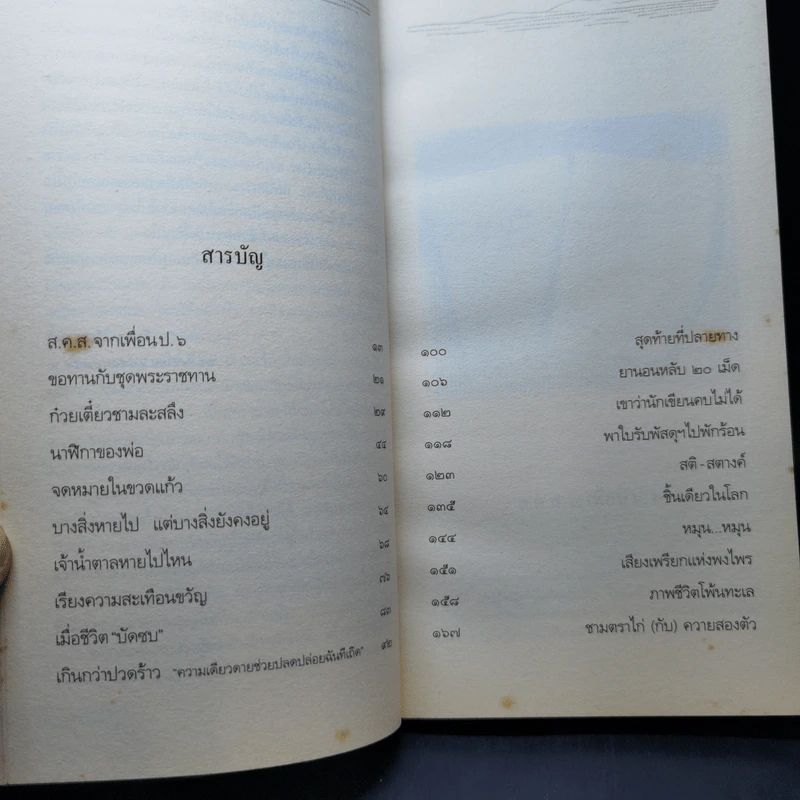 สารบัญ
ส.ค.ส. จากเพื่อน ป.๖ ๑๓
ขอทานกับชุดพระราชทาน ๒๑
ก๋วยเตี๋ยวชามละสลึง ๒๙
นาฬิกาของพ่อ ๔๔
จดหมายในขวดแก้ว ๖๐
บางสิ่งหายไป แต่บางสิ่งยังคงอยู่ ๖๔
เจ้าน้ำตาลหายไปไหน ๖๘
เรียงความสะเทือนขวัญ ๗๖
เมื่อชีวิต "บัดซบ" ๘๓
เกินกว่าปวดร้าว "ความเดียวดายช่วยปลดปล่อยฉันทีเถิด" ๙๒
๑๐๐ สุดท้ายที่ปลายทาง
๑๐๖ ยานอนหลับ ๒๐ เม็ด
๑๑๒ เขาว่านักเขียนคบไม่ได้
๑๑๘ พาใบรับพัสดุฯไปพักร้อน
๑๒๓ สติ - สตางค์
๑๓๕ ชิ้นเดียวในโลก
๑๔๔ หมุน...หมุน
๑๕๑ เสียงเพรียกแห่งพงไพร
๑๕๘ ภาพชีวิตโพ้นทะเล
๑๖๗ ชามตราไก่ (กับ) ควายสองตัว